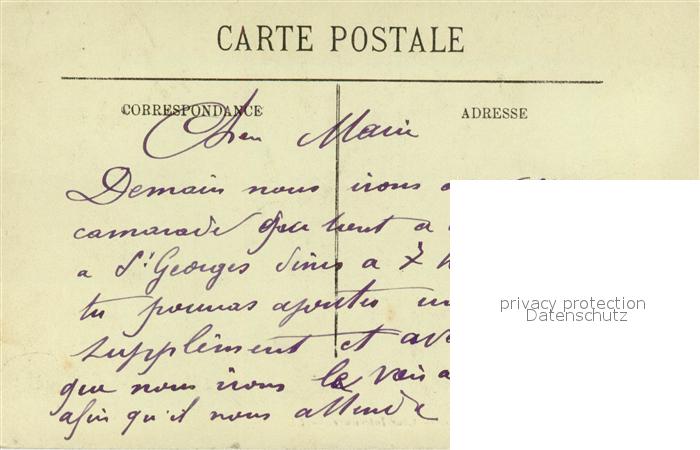 CARTE POSTALE
CORRESPONDANCE
ADRESSE
Cher Marie
Demain nous irons
camarade que tient a
a St Georges diner a 7 h
tu pourras ajouter un
supplément et av
que nous irons le voir a
afin qu'il nous attende
privacy protection
Datenschutz